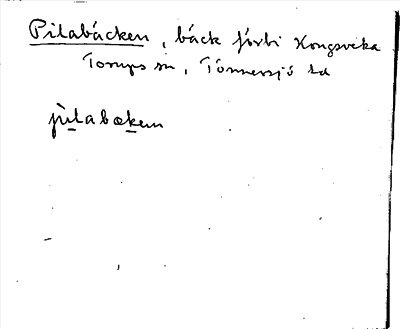 Pilabäcken, bäck förbi Kongsveka
Torups sn, Tönnersjö hd
pìlabækem